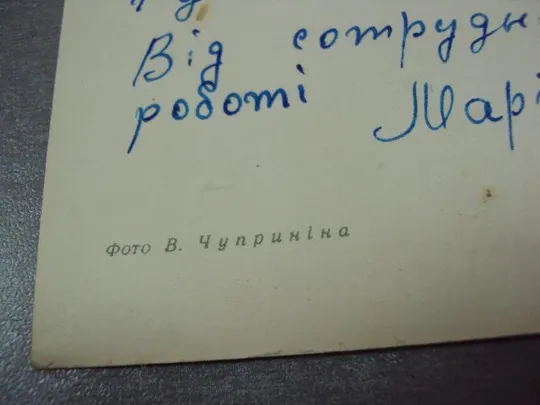 Від сотрудн
роботі Марі
Фото В. Чуприніна